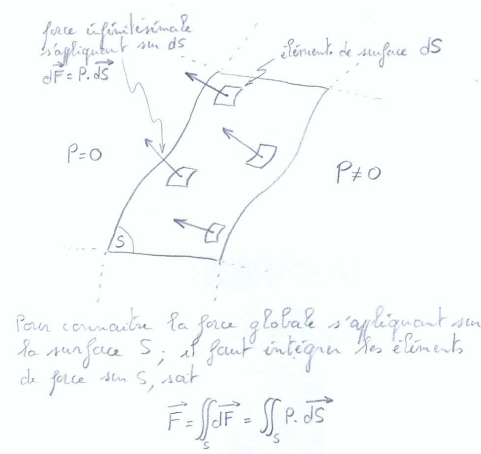 force infinitésimale
s'appliquant sur dS
dF⃗ = P.dS⃗
éléments de surface dS
P=0
P≠0
S
Pour connaître la force globale s'appliquant sur
la surface S, il faut intégrer les éléments
de force sur S, soit
F⃗ = ∬_S dF⃗ = ∬_S P.dS⃗